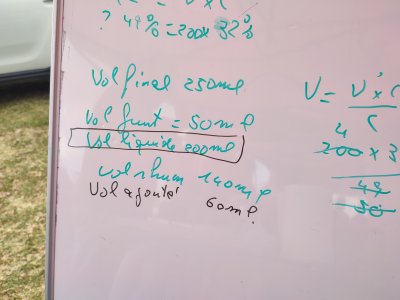 ? 49% = 200 x 32%
Vol final 250ml
Vol fruit = 50ml
Vol liquide 200ml
Vol rhum 140ml
Vol ajouté 60ml
V = V' x C
C
4
200 x 3
49
50